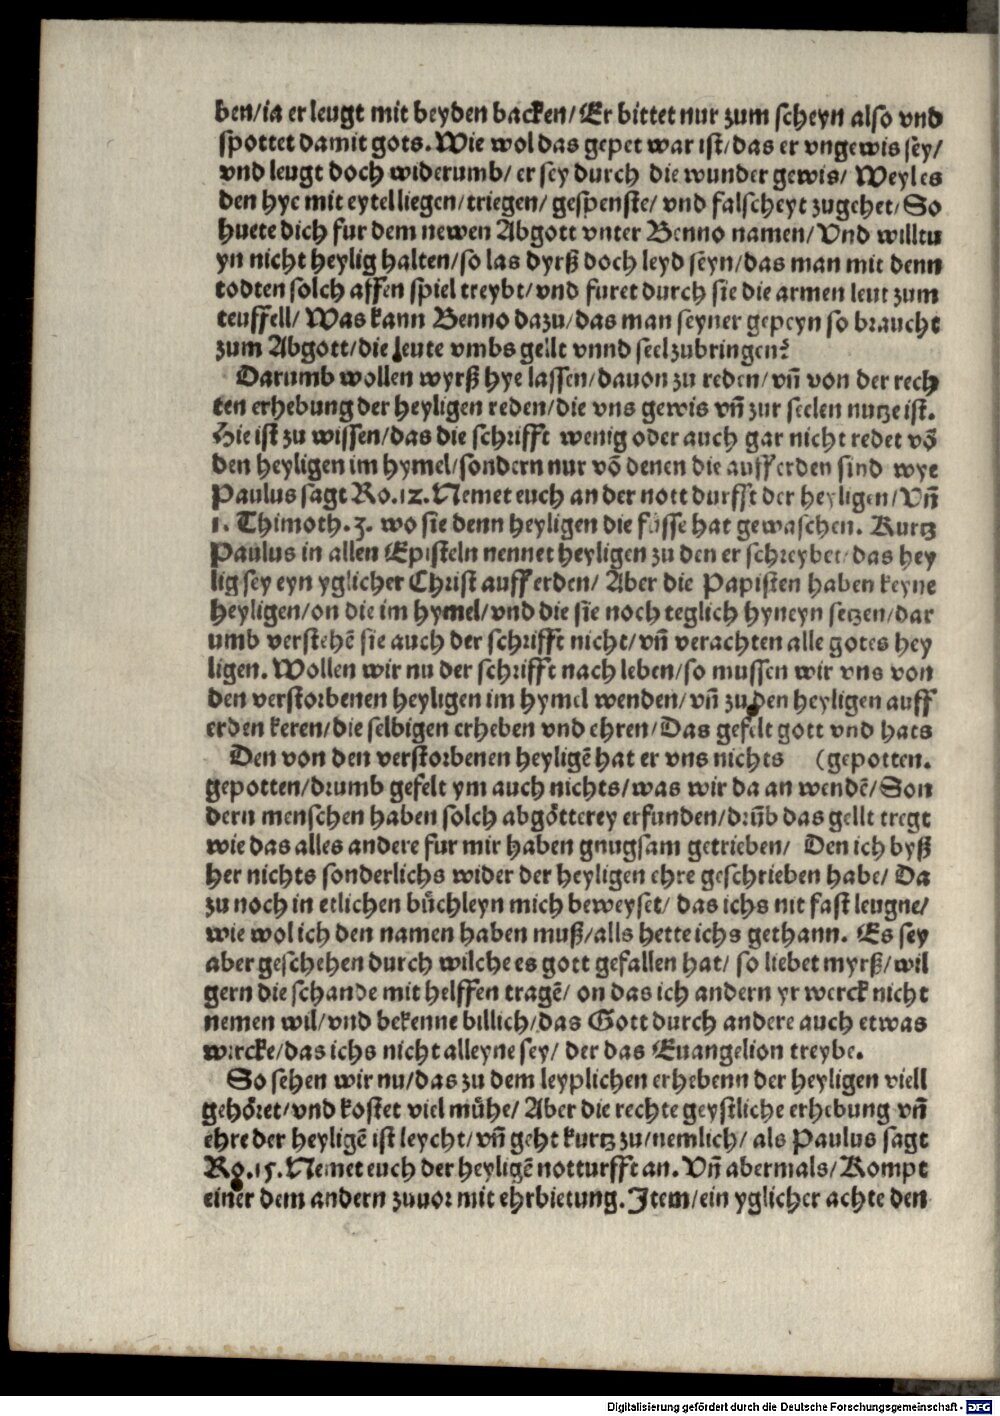 ben/ia er leugt mit beyden backen/Er bittet nur zum scheyn also vnd
spottet damit gots. Wie wol das gepet war ist/das er vngewis sey/
vnd leugt doch widerumb/ er sey durch die wunder gewis/ Weyl es
den hye mit eytel liegen/triegen/ gespenste/ vnd falscheyt zugehet/So
huete dich fur dem newen Abgott vnter Benno namen/Vnd willtu
yn nicht heylig halten/so las dyrß doch leyd seyn/das man mit denn
todten solch affen spiel treybt/vnd furet durch sie die armen leut zum
teuffell/ Was kann Benno dazu/das man seyner gepeyn so braucht
zum Abgott/die leute vmbs gellt vnnd seel zubringen?
Darumb wollen wyrß hye lassen/dauon zu reden/vñ von der rech
ten erhebung der heyligen reden/die vns gewis vñ zur seelen nutze ist.
Hie ist zu wissen/das die schrifft wenig oder auch gar nicht redet võ
den heyligen im hymel/sondern nur võ denen die auff erden sind wye
Paulus sagt Ro.12. Nemet euch an der nott durfft der heyligen/Vñ
1. Thimoth.3. wo sie denn heyligen die füsse hat gewaschen. Kurtz
Paulus in allen Episteln nennet heyligen zu den er schreybet/das hey
lig sey eyn yglicher Christ auff erden/ Aber die Papisten haben keyne
heyligen/on die im hymel/vnd die sie noch teglich hyneyn setzen/dar
umb verstehẽ sie auch der schrifft nicht/vñ verachten alle gotes hey
ligen. Wollen wir nu der schrifft nach leben/so mussen wir vns von
den verstorbenen heyligen im hymel wenden/vñ zu den heyligen auff
erden keren/die selbigen erheben vnd ehren/Das gefelt gott vnd hats
Den von den verstorbenen heyligẽ hat er vns nichts (gepotten.
gepotten/drumb gefelt ym auch nichts/was wir da an wendẽ/Son
dern menschen haben solch abgötterey erfunden/drũb das gellt tregt
wie das alles andere fur mir haben gnugsam getrieben/ Den ich byß
her nichts sonderlichs wider der heyligen ehre geschrieben habe/ Da
zu noch in etlichen büchleyn mich beweyset/ das ichs nit fast leugne/
wie wol ich den namen haben muß/alls hette ichs gethann. Es sey
aber geschehen durch wilche es gott gefallen hat/ so liebet myrß/wil
gern die schande mit helffen tragẽ/ on das ich andern yr werck nicht
nemen wil/vnd bekenne billich/das Gott durch andere auch etwas
wircke/das ichs nicht alleyne sey/ der das Euangelion treybe.
So sehen wir nu/das zu dem leyplichen erhebenn der heyligen viell
gehöret/vnd kostet viel mühe/ Aber die rechte geystliche erhebung vñ
ehre der heyligẽ ist leycht/vñ geht kurtz zu/nemlich/ als Paulus sagt
Ro.15. Nemet euch der heyligẽ notturfft an. Vñ abermals/Kompt
einer dem andern zuuor mit ehrbietung. Item/ein yglicher achte den
Digitalisierung gefördert durch die Deutsche Forschungsgemeinschaft - DFG